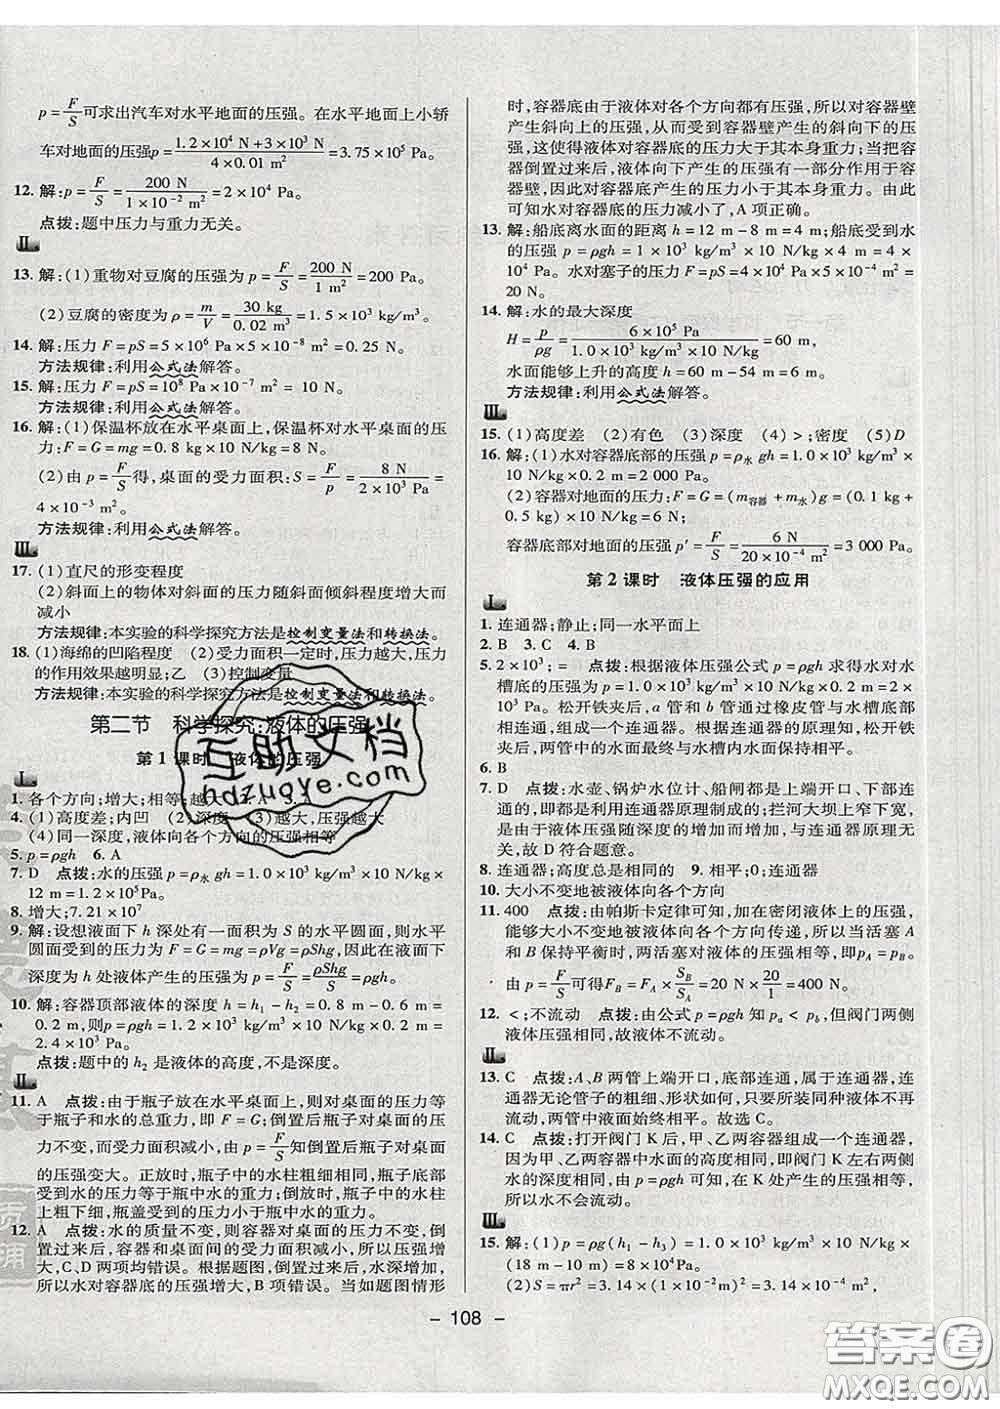 p = F/S 可求出汽车对水平地面的压强。在水平地面上小轿
车对地面的压强p = (1.2×10⁴ N+3×10³ N)/(4×0.01 m²) = 3.75×10⁵ Pa。
12. 解:p = F/S = 200 N/(1×10⁻² m²) = 2×10⁴ Pa。
点拨:题中压力与重力无关。
Ⅱ
13. 解:(1)重物对豆腐的压强为 p = F/S = 200 N/1 m² = 200 Pa。
(2)豆腐的密度为 ρ = m/V = 30 kg/0.02 m³ = 1.5×10³ kg/m³。
14. 解:压力 F = pS = 5×10⁶ Pa×5×10⁻⁸ m² = 0.25 N。
方法规律:利用公式法解答。
15. 解:压力 F = pS = 10⁸ Pa×10⁻⁷ m² = 10 N。
方法规律:利用公式法解答。
16. 解:(1)保温杯放在水平桌面上,保温杯对水平桌面的压
力:F = G = mg = 0.8 kg×10 N/kg = 8 N。
(2)由 p = F/S 得,桌面的受力面积:S = F/p = 8 N/(2×10³ Pa) =
4×10⁻³ m²。
方法规律:利用公式法解答。
Ⅲ
17. (1)直尺的形变程度
(2)斜面上的物体对斜面的压力随斜面倾斜程度增大而
减小
方法规律:本实验的科学探究方法是控制变量法和转换法。
18. (1)海绵的凹陷程度 (2)受力面积一定时,压力越大,压力
的作用效果越明显;乙 (3)控制变量
方法规律:本实验的科学探究方法是控制变量法和转换法。
第二节 科学探究:液体的压强
第1课时 液体的压强
Ⅰ
1. 各个方向;增大;相等;越大 2. A 3. A
4. (1)高度差;内凹 (2)深度 (3)越大,压强越大
(4)同一深度,液体向各个方向的压强相等
5. p = ρgh 6. A
7. D 点拨:水的压强 p = ρ水 gh = 1.0×10³ kg/m³×10 N/kg×
12 m = 1.2×10⁵Pa。
8. 增大;7.21×10⁷
9. 解:设想液面下 h 深处有一面积为 S 的水平圆面,则水平
圆面受到的压力为 F = G = mg = ρVg = ρShg,因此在液面下
深度为 h 处液体产生的压强 p = F/S = ρShg/S = ρgh。
10. 解:容器顶部液体的深度 h = h₁ − h₂ = 0.8 m − 0.6 m =
0.2 m,则p = ρgh = 1.2×10³ kg/m³×10 N/kg×0.2 m =
2.4×10³ Pa。
点拨:题中的 h₂ 是液体的高度,不是深度。
Ⅱ
11. A 点拨:由于瓶子放在水平桌面上,则对桌面的压力等
于瓶子和水的总重力,即 F = G;倒置后瓶子对桌面的压
力不变,而受力面积减小,由 p = F/S 知倒置后瓶子对桌面
的压强变大。正放时,瓶子中的水柱粗细相同,瓶子底部
受到水的压力等于瓶中水的重力;倒放时,瓶子中的水柱
上粗下细,瓶盖受到的压力小于瓶中水的重力。
12. A 点拨:水的质量不变,则容器对桌面的压力不变,倒
置过来后,容器和桌面间的受力面积变大,所以压强变
小,C、D 两项均错误。根据题图,倒置过来后,水深增加,
所以水对容器底的压强增大,B 项错误。当如题图情形
时,容器底由于液体对各个方向都有压强,所以对容器壁
产生斜向上的压力,从而受到容器壁产生的斜向下的压
强,这使得液体对容器底的压力大于其本身重力。当把容
器倒置过来后,液体向下产生的压强有一部分作用在容
器壁,因此对容器底产生的压力小于其本身重力。由此
可知水对容器底的压力减小了,A 项正确。
13. 解:船底离水面的距离 h = 12 m − 8 m = 4 m;船底受到水
的压强 p = ρgh = 1×10³ kg/m³×10 N/kg×4 m = 4×
10⁴ Pa。水对塞子的压力 F = pS = 4×10⁴ Pa×5×10⁻⁴ m² =
20 N。
14. 解:水的最大深度
H = p/ρg = 6×10⁵ Pa/(1×10³ kg/m³×10 N/kg) = 60 m,
水面能够上升的高度 h = 60 m − 54 m = 6 m。
方法规律:利用公式法解答。
Ⅲ
15. (1)高度差 (2)有色 (3)深度 (4) > ;密度 (5)D
16. 解:(1)水对容器底部的压强 p = ρ水 gh = 1.0×10³ kg/m³×
10 N/kg×0.2 m = 2 000 Pa。
(2)容器对地面的压力:F = G = (m容器 + m水)g = (0.1 kg +
0.5 kg)×10 N/kg = 6 N;
容器底部对地面的压强 p′ = F/S = 6 N/(20×10⁻⁴ m²) = 3 000 Pa。
第2课时 液体压强的应用
Ⅰ
1. 连通器;静止;同一水平面上
2. B 3. C 4. B
5. 2×10³; = 点拨:根据液体压强公式 p = ρgh 求得水对水
槽底的压强为 p = ρgh = 1.0×10³ kg/m³×10 N/kg×0.2 m =
2×10³ Pa。松开铁夹后,a 管和 b 管通过橡皮管与水槽底
部相连通,组成一个连通器。根据连通器原理知,松开铁
夹后,两管中的水面最终与水槽内水面保持相平。
6. B
7. D 点拨:水壶、锅炉水位计、船闸都是上端开口、下部连
通的,即都是利用连通器原理制成的;拦河大坝上窄下宽,
是由于液体压强随深度的增加而增加,与连通器原理无
关,故 D 符合题意。
8. 连通器;高度总是相同的 9. 相平;0;连通器
10. 大小不变地被液体向各个方向
11. 400 点拨:由帕斯卡定律可知,加在密闭液体上的压强,
能够大小不变地被液体向各个方向传递,所以当活塞 A
和 B 保持平衡时,两活塞对液体的压强相等,即 pA = pB。
由 p = F/S 可得 FB = FA × SB/SA = 20 N × 20/1 = 400 N。
12. < ;不流动 点拨:由公式 p = ρgh 知 pa < pb,但阀门两侧
液体压强相同,故液体不流动。
Ⅱ
13. C 点拨:A、B 两管上端开口,底部连通,属于连通器,连
通器无论管子的粗细、形状如何,只要所装同种液体不再
流动,两管中液面始终相平。故选 C。
14. C 点拨:打开阀门 K 后,甲、乙两容器组成一个连通器,
因为甲、乙两容器中水面的高度相同,即 K 左右两侧水
的深度相同,由 p = ρgh 可知,水在 K 处产生的压强相等,
所以水不会流动。
Ⅲ
15. 解:(1)p = ρg(h₁ − h₃) = 1.0×10³ kg/m³×10 N/kg×
(18 m − 10 m) = 8×10⁴ Pa;
(2)S = πr² = 3.14×(1×10⁻² m)² = 3.14×10⁻⁴ m²,
− 108 −
互助文档
hdzuoye.com
答案圈
MXQE.COM